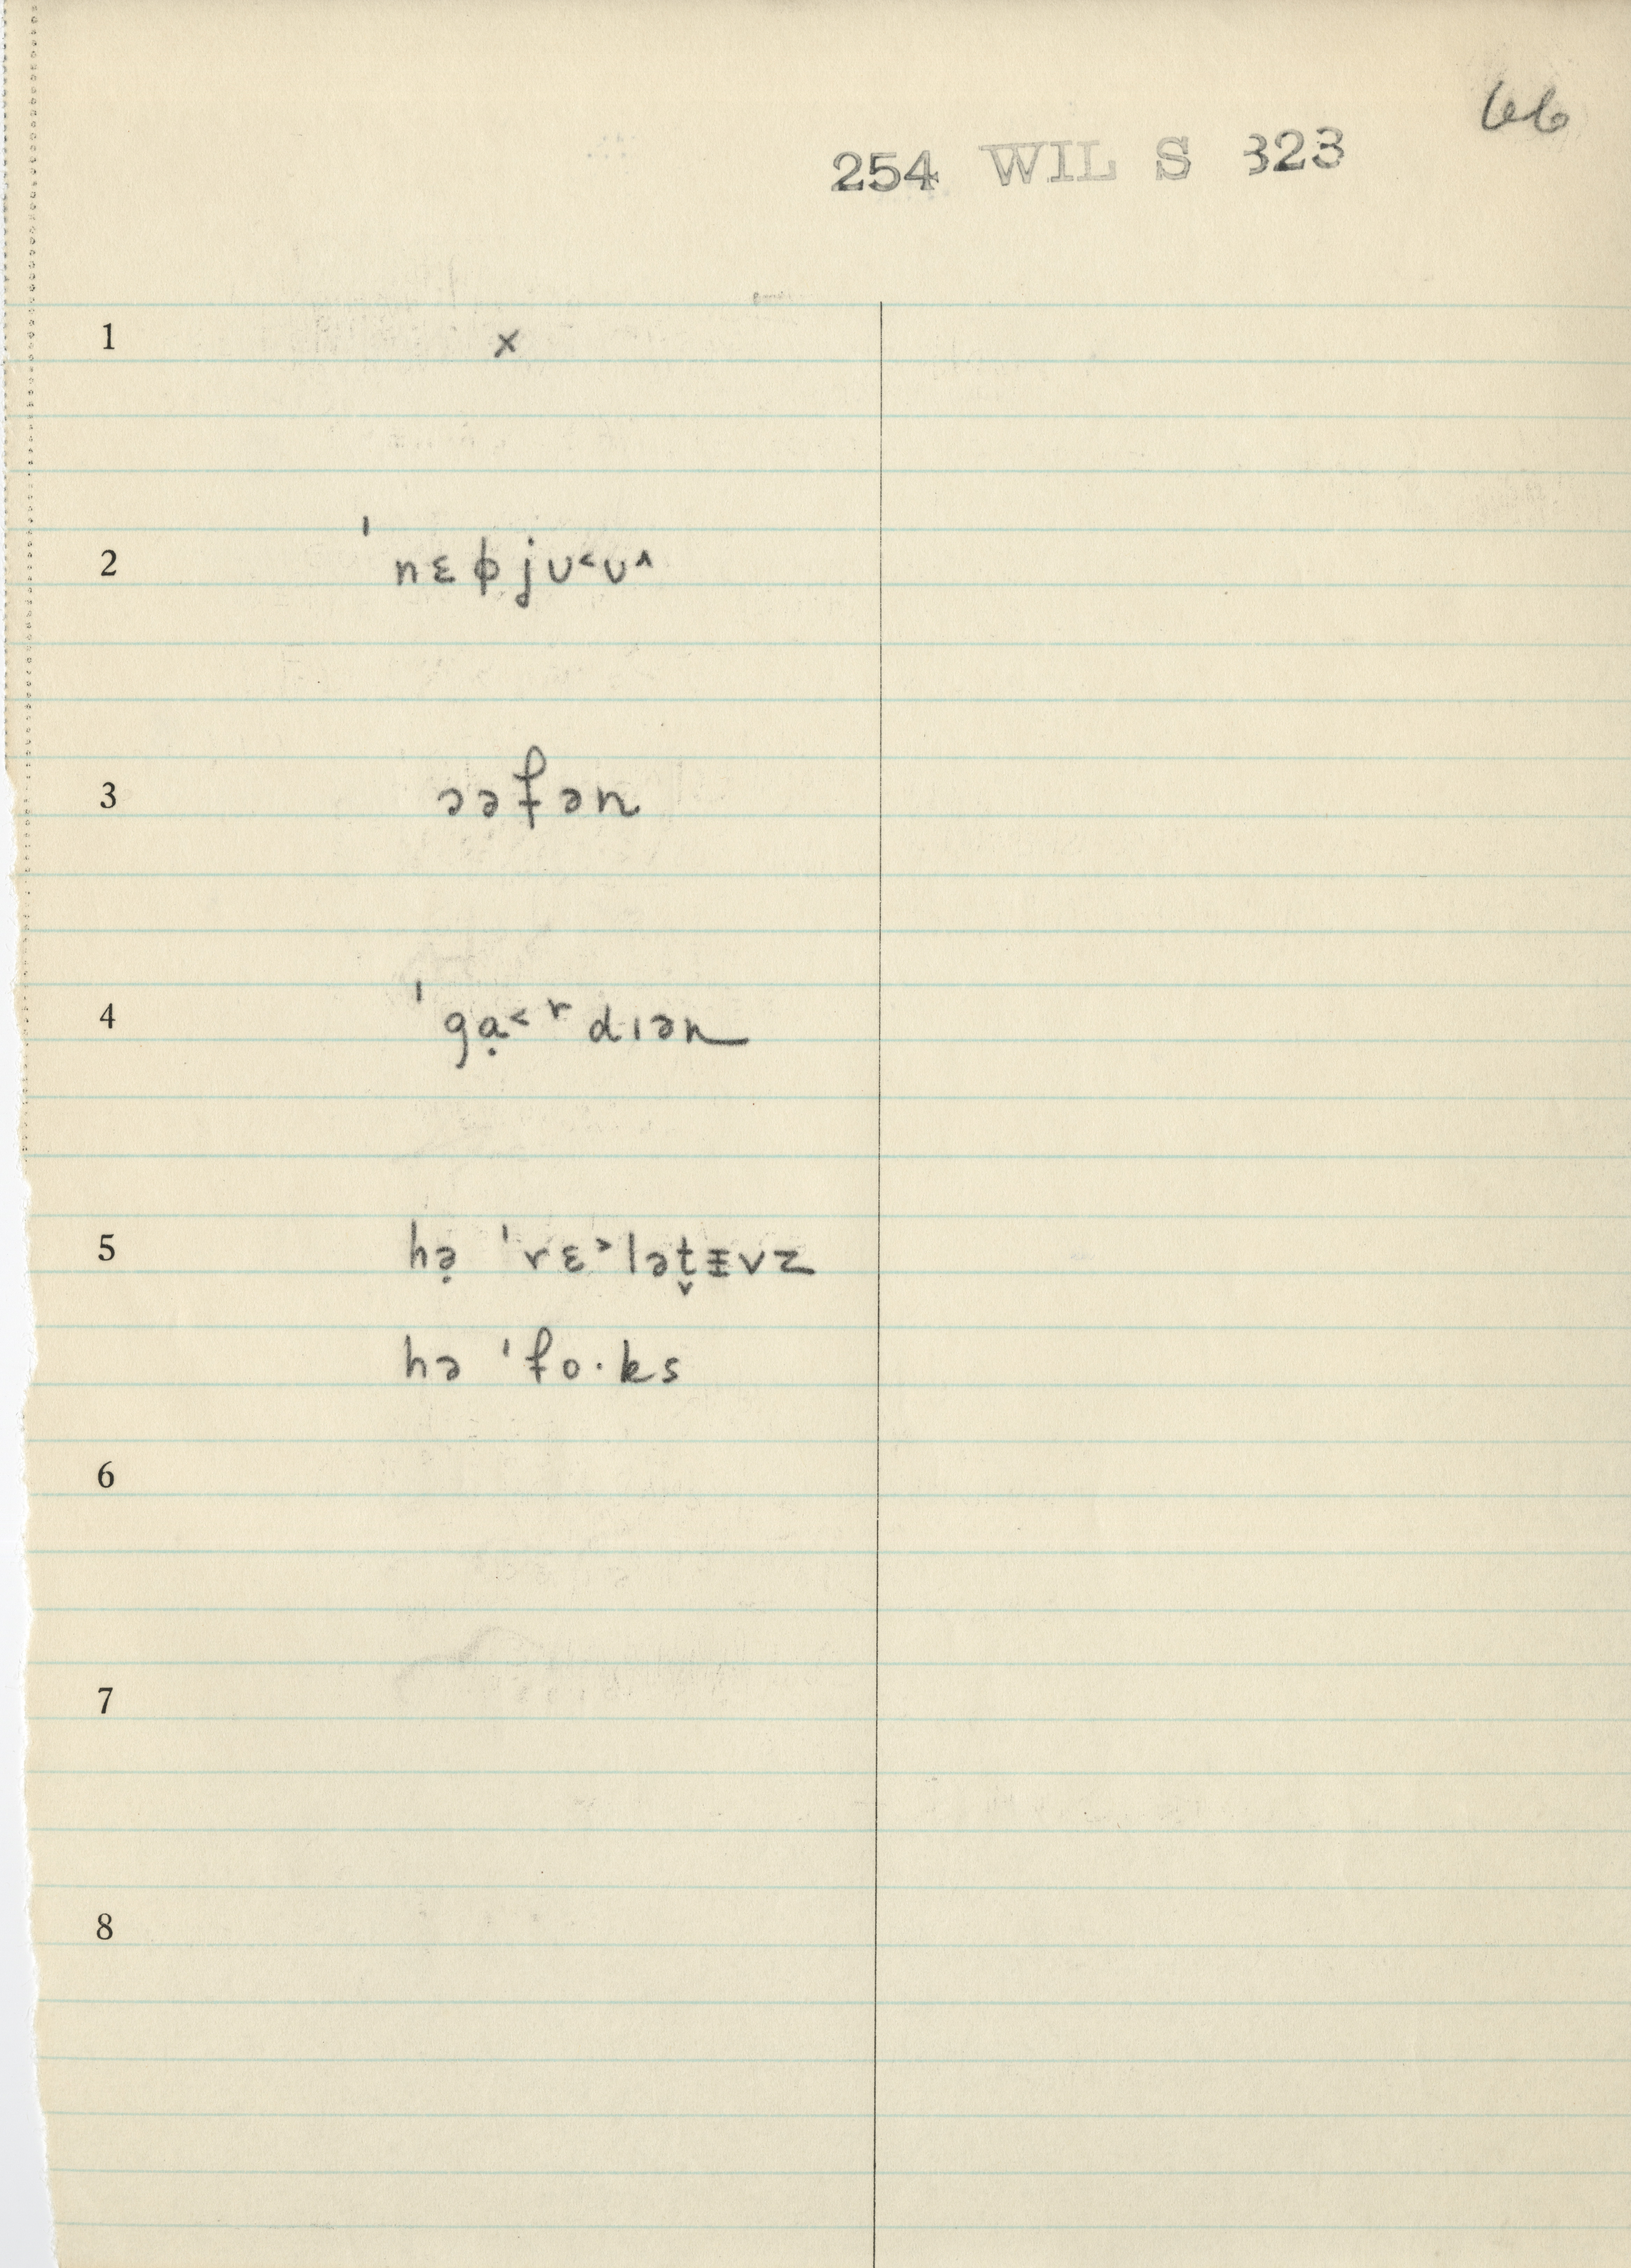 66
254 WIL S 323
1 x
2 ˈnɛɸjʊ˂ʊ˄
3 əəfən
4 ˈgɑ̣˂ʳdɪən
5 hə̣ ˈrɛ˃lət̬ɪ̵vz
hə ˈfo·ks
6
7
8